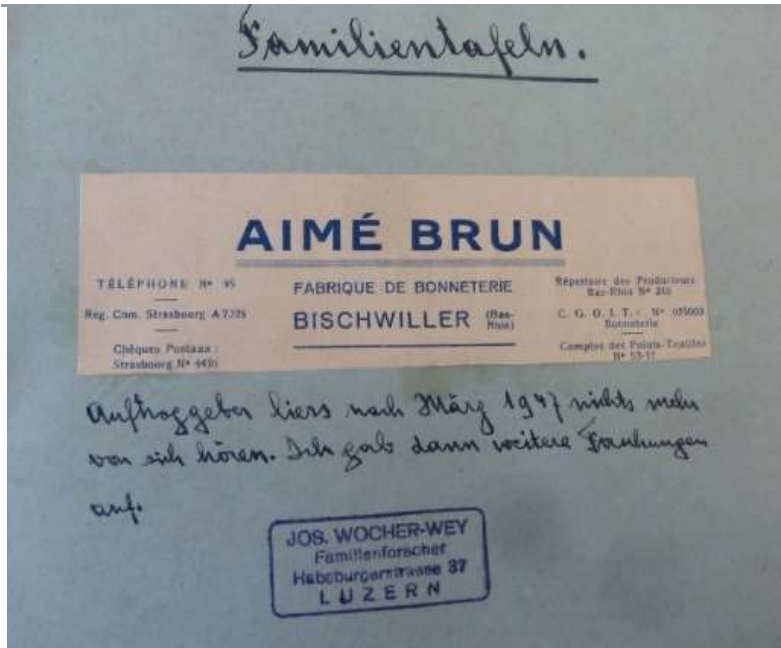 Familientafeln.
AIMÉ BRUN
TÉLÉPHONE Nº 95
Reg. Com. Strasbourg A
Chèques Postaux :
Strasbourg Nº
FABRIQUE DE BONNETERIE
BISCHWILLER (Bas-Rhin)
Répertoire des Producteurs
Bas-Rhin Nº
C. G. O. I. T. - Nº
Bonneterie
Comptes des Points-Textiles
Nº
Auftraggeber liess nach März 1947 nichts mehr
von sich hören. Ich gab dann weitere Forschungen
auf.
JOS. WOCHER-WEY
Familienforscher
Habsburgerstrasse 37
LUZERN